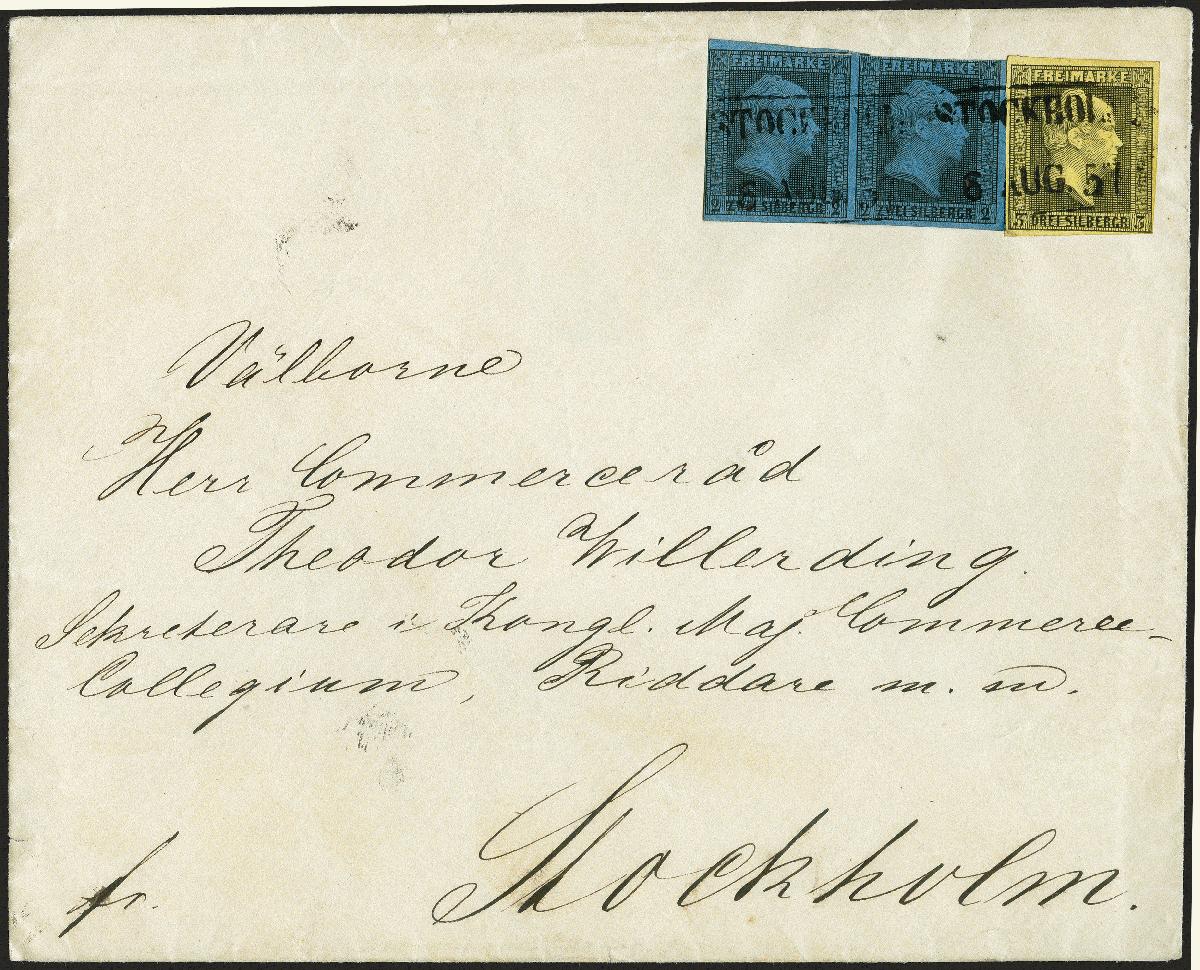 FREIMARKE FREIMARKE FREIMARKE
STOCKHOL
6 6 AUG. 57
2 ZWEI SILBERGR 2 2 ZWEI SILBERGR 2 3 DREI SILBERGR 3
Välborne
Herr Commerceråd
Theodor Willerding.
Sekreterare i Kongl. Maj. Commerce-
Collegium, Riddare m. m.
Stockholm.
fr.